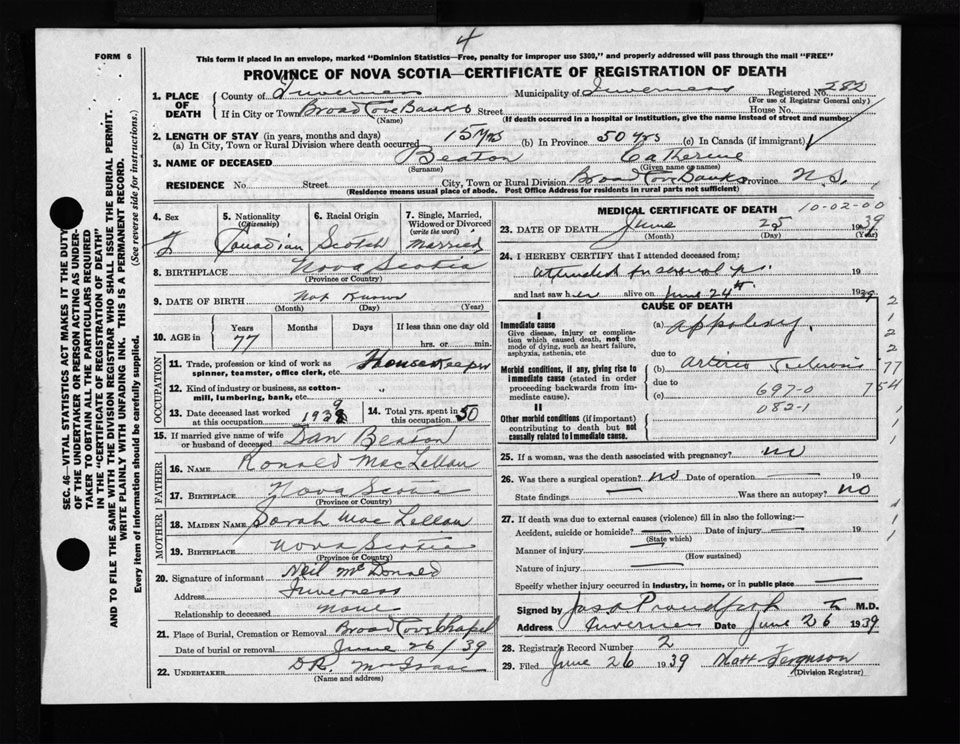 4
FORM 6
This form if placed in an envelope, marked "Dominion Statistics—Free, penalty for improper use $300," and properly addressed will pass through the mail "FREE"
PROVINCE OF NOVA SCOTIA—CERTIFICATE OF REGISTRATION OF DEATH
1. PLACE OF DEATH County of Inverness Municipality of Inverness Registered No. 282
(For use of Registrar General only)
If in City or Town Broad Cove Banks Street House No.
(Name) (If death occurred in a hospital or institution, give the name instead of street and number)
2. LENGTH OF STAY (in years, months and days)
(a) In City, Town or Rural Division where death occurred 15 yrs (b) In Province 50 yrs (c) In Canada (if immigrant)
3. NAME OF DECEASED Beaton Catherine
(Surname) (Given name or names)
RESIDENCE No. Street City, Town or Rural Division Broad Cove Banks Province N.S.
(Residence means usual place of abode. Post Office Address for residents in rural parts not sufficient)
4. Sex 5. Nationality (Citizenship) 6. Racial Origin 7. Single, Married, Widowed or Divorced (write the word)
F Canadian Scotch Married
8. BIRTHPLACE Nova Scotia
(Province or Country)
9. DATE OF BIRTH Not Known
(Month) (Day) (Year)
10. AGE in Years Months Days If less than one day old
77 hrs. or min.
OCCUPATION
11. Trade, profession or kind of work as spinner, teamster, office clerk, etc. Housekeeper
12. Kind of industry or business, as cotton-mill, lumbering, bank, etc.
13. Date deceased last worked at this occupation 1939 14. Total yrs. spent in this occupation 50
15. If married give name of wife or husband of deceased Dan Beaton
FATHER
16. NAME Ronald MacLellan
17. BIRTHPLACE Nova Scotia
(Province or Country)
MOTHER
18. MAIDEN NAME Sarah MacLellan
19. BIRTHPLACE Nova Scotia
(Province or Country)
20. Signature of informant Neil McDonald
Address Inverness
Relationship to deceased None
21. Place of Burial, Cremation or Removal Broad Cove Chapel
Date of burial or removal June 26/39
22. UNDERTAKER D.R. McIsaac
(Name and address)
MEDICAL CERTIFICATE OF DEATH 10-02-00
23. DATE OF DEATH June 25 1939
(Month) (Day) (Year)
24. I HEREBY CERTIFY that I attended deceased from:
attended for several 19
and last saw her alive on June 24th 1939
CAUSE OF DEATH
I
Immediate cause (a) Appoplexy
Give disease, injury or complication which caused death, not the mode of dying, such as heart failure, asphyxia, asthenia, etc
due to
Morbid conditions, if any, giving rise to immediate cause (stated in order proceeding backwards from immediate cause). (b) Arterio Sclerosis
due to
(c) 697-0
082-1
II
Other morbid conditions (if important) contributing to death but not causally related to immediate cause.
2
1
2
2
77
754
1
1
1
25. If a woman, was the death associated with pregnancy? no
26. Was there a surgical operation? no Date of operation — 19
State findings — Was there an autopsy? no
27. If death was due to external causes (violence) fill in also the following:—
Accident, suicide or homicide? — Date of injury — 19
(State which)
Manner of injury —
(How sustained)
Nature of injury —
Specify whether injury occurred in industry, in home, or in public place —
1
1
1
Signed by Jas. Proudfoot M.D.
Address Inverness Date June 26 1939
28. Registrar's Record Number 2
29. Filed June 26 1939 Matt Ferguson
(Division Registrar)
SEC. 46—VITAL STATISTICS ACT MAKES IT THE DUTY
OF THE UNDERTAKER OR PERSON ACTING AS UNDER-
TAKER TO OBTAIN ALL THE PARTICULARS REQUIRED
IN THE "CERTIFICATE OF REGISTRATION OF DEATH"
AND TO FILE THE SAME WITH THE DIVISION REGISTRAR WHO SHALL ISSUE THE BURIAL PERMIT.
WRITE PLAINLY WITH UNFADING INK. THIS IS A PERMANENT RECORD.
Every item of information should be carefully supplied. (See reverse side for instructions.)